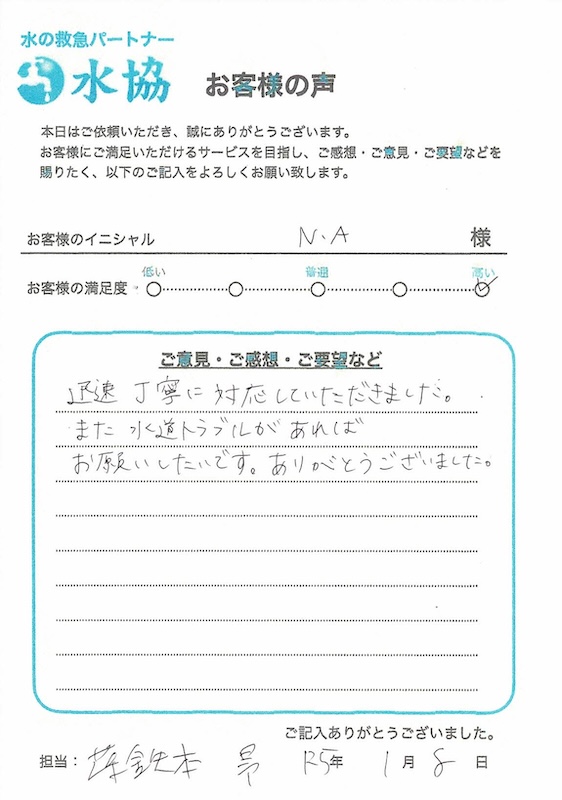 水の救急パートナー
水協 お客様の声
本日はご依頼いただき、誠にありがとうございます。
お客様にご満足いただけるサービスを目指し、ご感想・ご意見・ご要望などを
賜りたく、以下のご記入をよろしくお願い致します。
お客様のイニシャル N.A 様
低い 普通 高い
お客様の満足度
ご意見・ご感想・ご要望など
迅速 丁寧に対応していただきました。
また 水道トラブルがあれば
お願いしたいです。ありがとうございました。
ご記入ありがとうございました。
担当: R5年 1月 8日